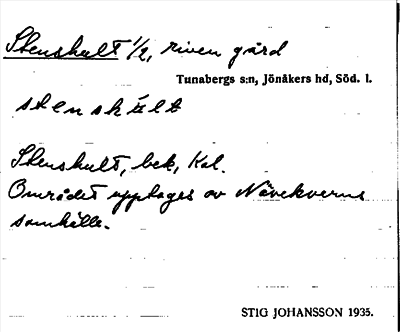 Stenshult 1/2, riven gård
Tunabergs s:n, Jönåkers hd, Söd. l.
stenskält
Stenshult, bek, Kal.
Området upptages av Nävekverns
samhälle.
STIG JOHANSSON 1935.